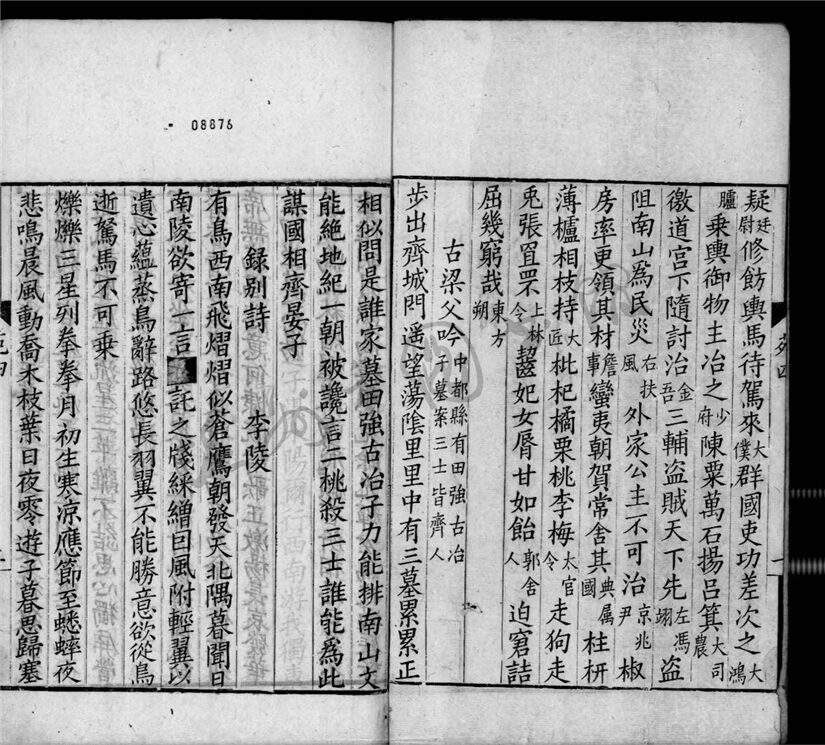 疑廷尉修飭輿馬待駕來大僕群國吏功差次之大鴻
臚乗輿御物主治之少府陳粟萬石揚呂箕大司農
徼道宮下隨討治金吾三輔盗賊天下先左馮翊盗
阻南山為民災右扶風外家公主不可治京兆尹椒
房率更領其材詹事蠻夷朝賀常舍其典属國柱枅
薄櫨相枝持大匠枇杷橘栗桃李梅太官令走狗走
兎張罝罘上林令齧妃女脣甘如飴郭舍人迫窘詰
屈幾窮哉東方朔
古梁父吟中都縣有田強古冶子墓案三士皆齊人
步出齊城門遥望蕩隂里里中有三墓累累正
相似問是誰家墓田強古冶子力能排南山文
能絶地紀一朝被讒言二桃殺三士誰能為此
謀國相齊晏子
録别詩 李陵
有鳥西南飛熠熠似蒼鷹朝發天北隅暮聞日
南陵欲寄一言託之牋綵繒因風附輕翼以
遺心蘊蒸鳥辭路悠長羽翼不能勝意欲從鳥
逝駑馬不可乗
爍爍三星列拳拳月初生寒涼應節至蟋蟀夜
悲鳴晨風動喬木枝葉日夜零遊子暮思歸塞
08876